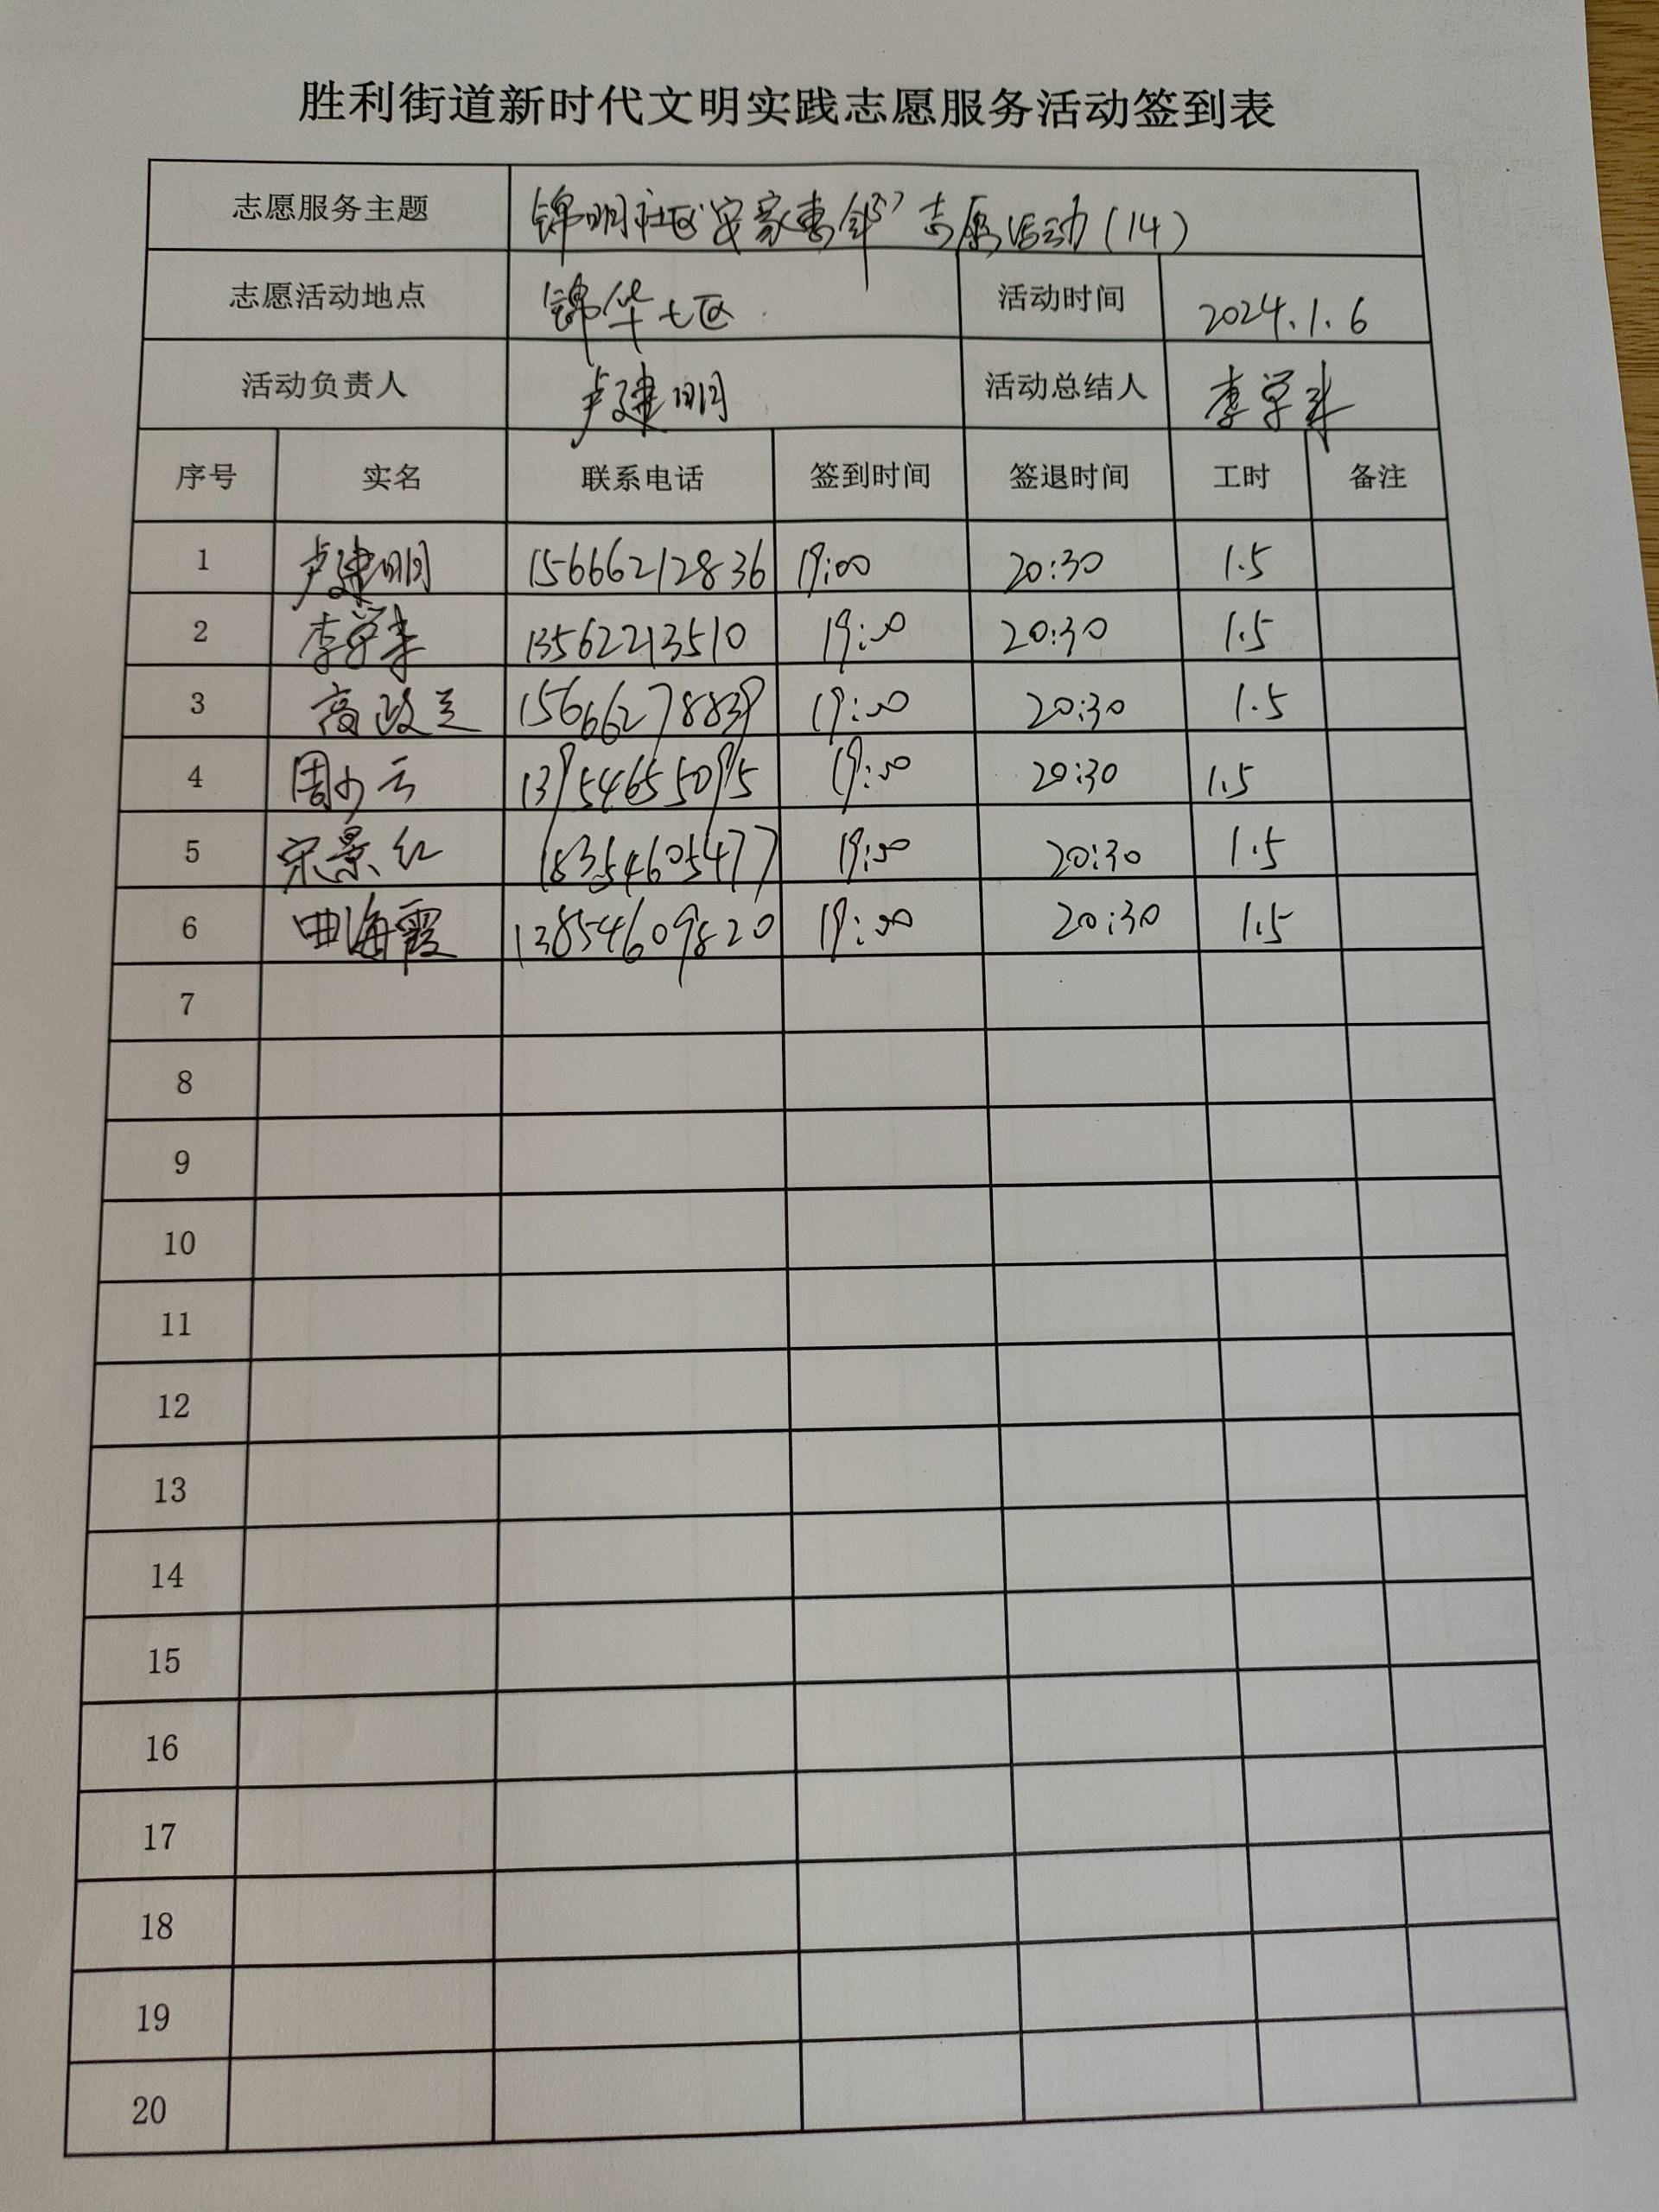 胜利街道新时代文明实践志愿服务活动签到表
志愿服务主题 锦明社区“安家惠邻”志愿活动(14)
志愿活动地点 锦华七区 活动时间 2024.1.6
活动负责人 卢建明 活动总结人 李学来
序号 实名 联系电话 签到时间 签退时间 工时 备注
1 卢建明 15666212836 19:00 20:30 1.5
2 李学来 13562213510 19:00 20:30 1.5
3 高政 15666278839 19:00 20:30 1.5
4 周少云 13954655095 19:00 20:30 1.5
5 宋景红 18354605477 19:00 20:30 1.5
6 曲海霞 13854609820 19:00 20:30 1.5
7
8
9
10
11
12
13
14
15
16
17
18
19
20